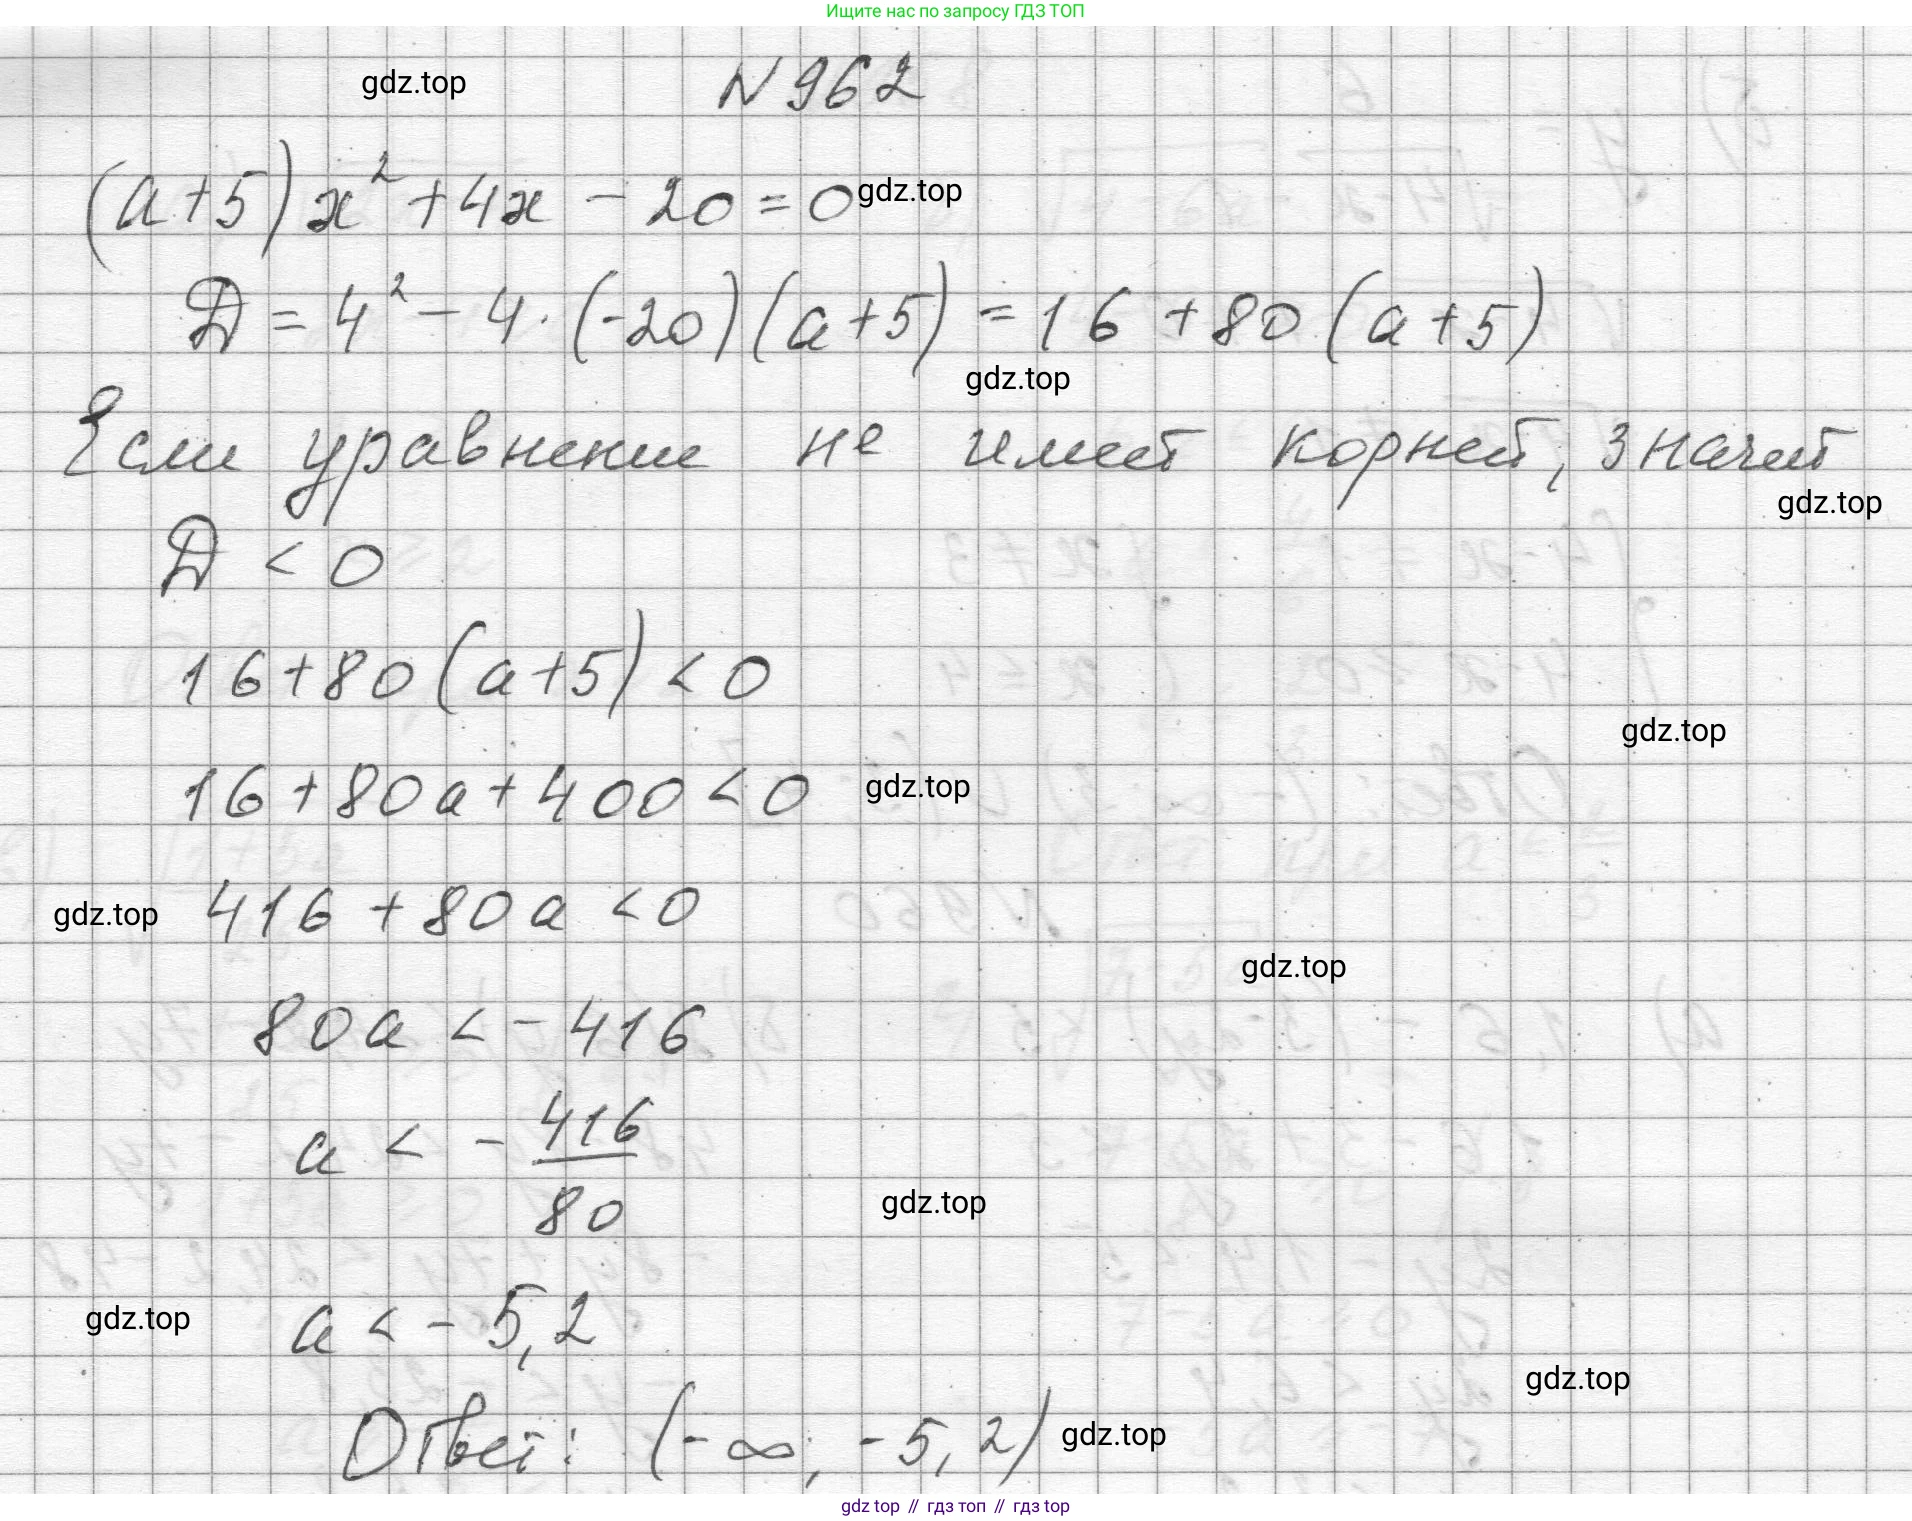 Ищите нас по запросу ГДЗ ТОП
gdz.top
N 962
(a+5)x²+4x-20=0 gdz.top
D=4²-4·(-20)(a+5)=16+80(a+5)
gdz.top
Если уравнение не имеет корней, значит
gdz.top
D<0
16+80(a+5)<0
gdz.top
16+80a+400<0 gdz.top
gdz.top 416+80a<0
gdz.top
80a<-416
a<-416/80
gdz.top
gdz.top a<-5,2
gdz.top
Ответ: (-∞; -5,2) gdz.top
gdz top // гдз топ // гдз top